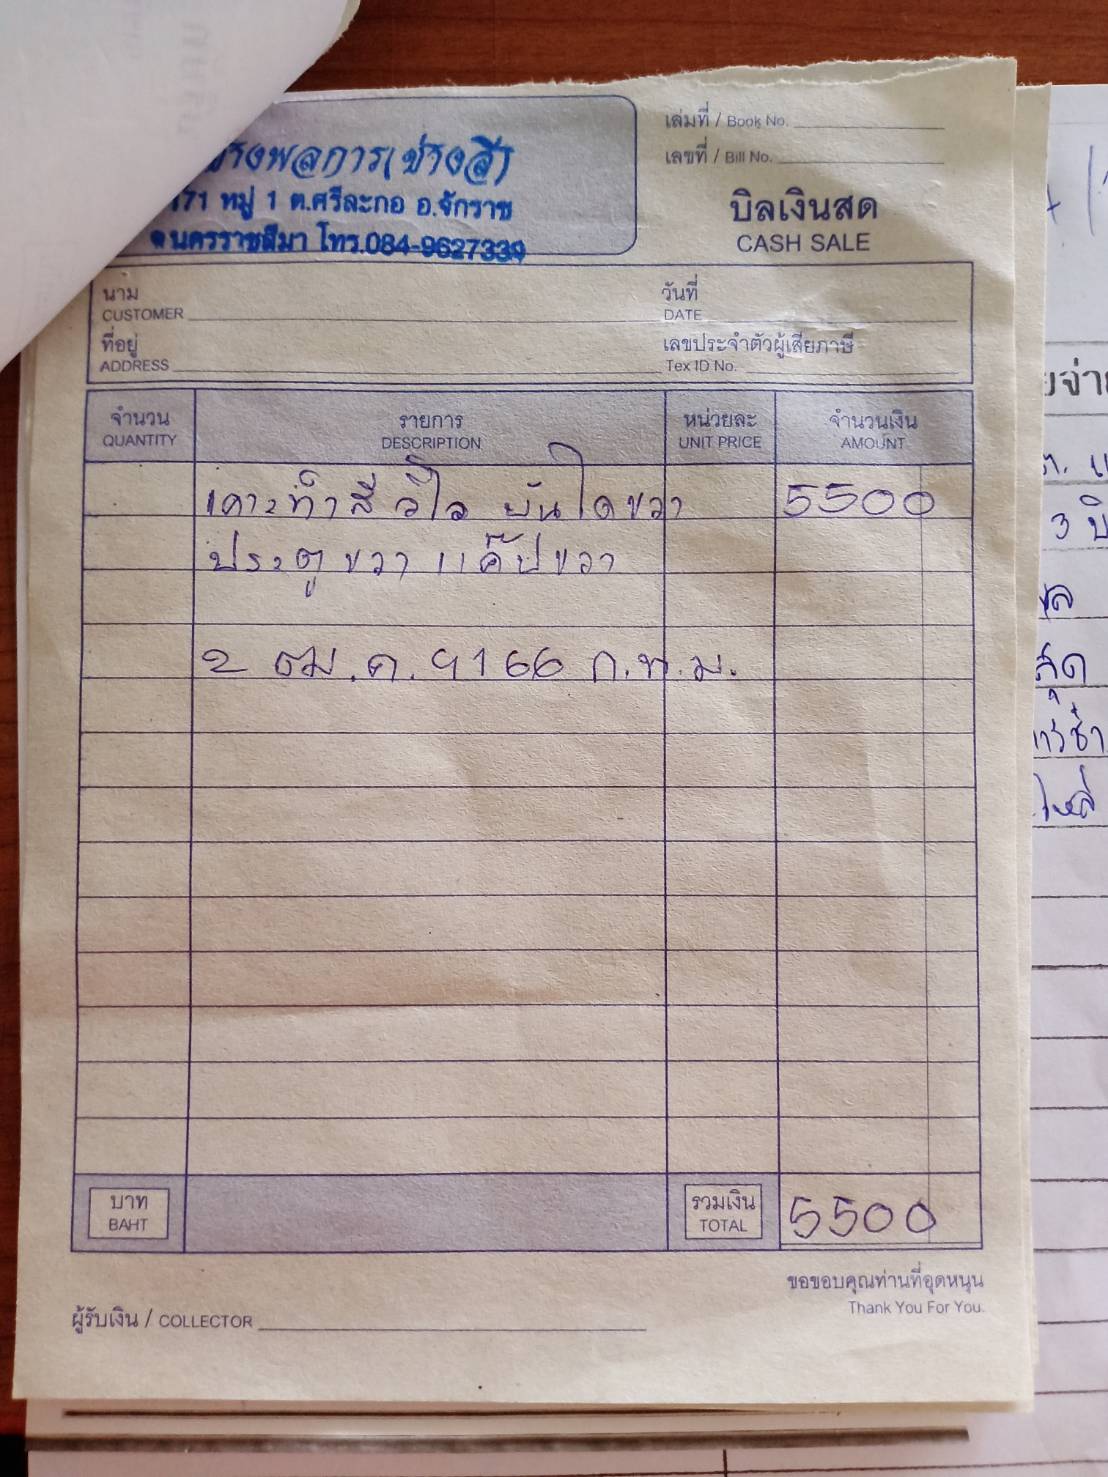 างพลการ(ช่างสี)
171 หมู่ 1 ต.ศรีละกอ อ.จักราช
จ.นครราชสีมา โทร.084-9627339
เล่มที่ / Book No.
เลขที่ / Bill No.
บิลเงินสด
CASH SALE
นาม
CUSTOMER
วันที่
DATE
ที่อยู่
ADDRESS
เลขประจำตัวผู้เสียภาษี
Tex ID No.
จำนวน รายการ หน่วยละ จำนวนเงิน
QUANTITY DESCRIPTION UNIT PRICE AMOUNT
เคาะทำสี วีโก บันไดขวา 5500
ประตูขวา แค๊ปขวา
2 ฒค. 9166 ก.ท.ม.
บาท
BAHT
รวมเงิน
TOTAL
5500
ขอขอบคุณท่านที่อุดหนุน
Thank You For You.
ผู้รับเงิน / COLLECTOR
3 บิ